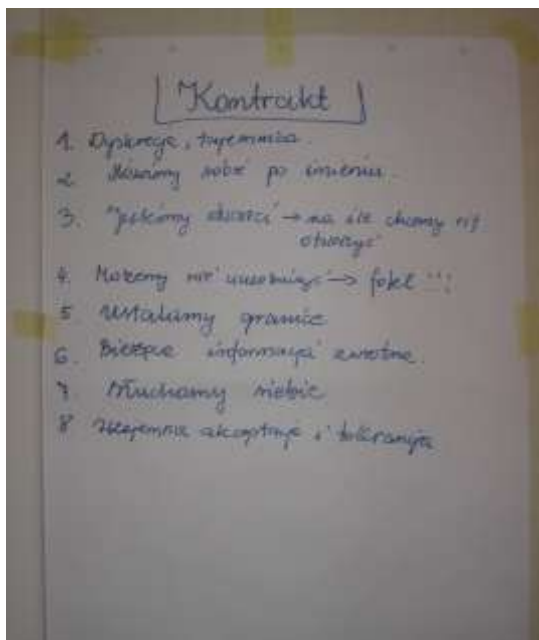 Kontrakt
1. Dyskrecja, tajemnica.
2. Mówimy sobie po imieniu.
3. Jesteśmy otwarci → na ile chcemy się
otworzyć
4. Możemy nie → fotel !!!
5. Ustalamy granice
6. Bieżące informacje zwrotne.
7. Słuchamy siebie
8 Wzajemna akceptacja i tolerancja